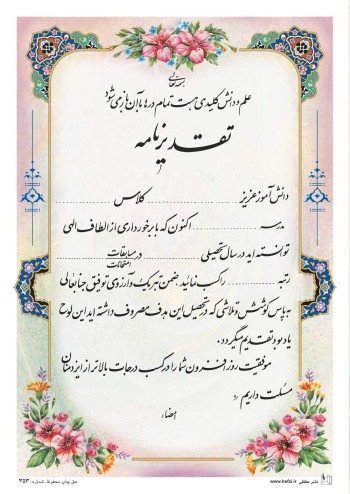 بسمه تعالی
علم و دانش کلیدی است تمام درها با آن باز می شود
تقدیرنامه
دانش آموز عزیز کلاس
مدرسه اکنون که با برخورداری از الطاف الهی
توانسته اید در سال تحصیلی در مسابقات
امتحانات
رتبه را کسب نمائید ضمن تبریک و آرزوی توفیق جنابعالی
به پاس کوشش و تلاشی که در تحصیل این هدف مصروف داشته اید این لوح
یادبود تقدیم میگردد،
موفقیت روز افزون شما را در کسب درجات بالاتر از ایزد منان
مسئلت داریم
امضاء
حق چاپ محفوظ. شماره: ۳۵۳
www.hefzi.ir نشر حفظی